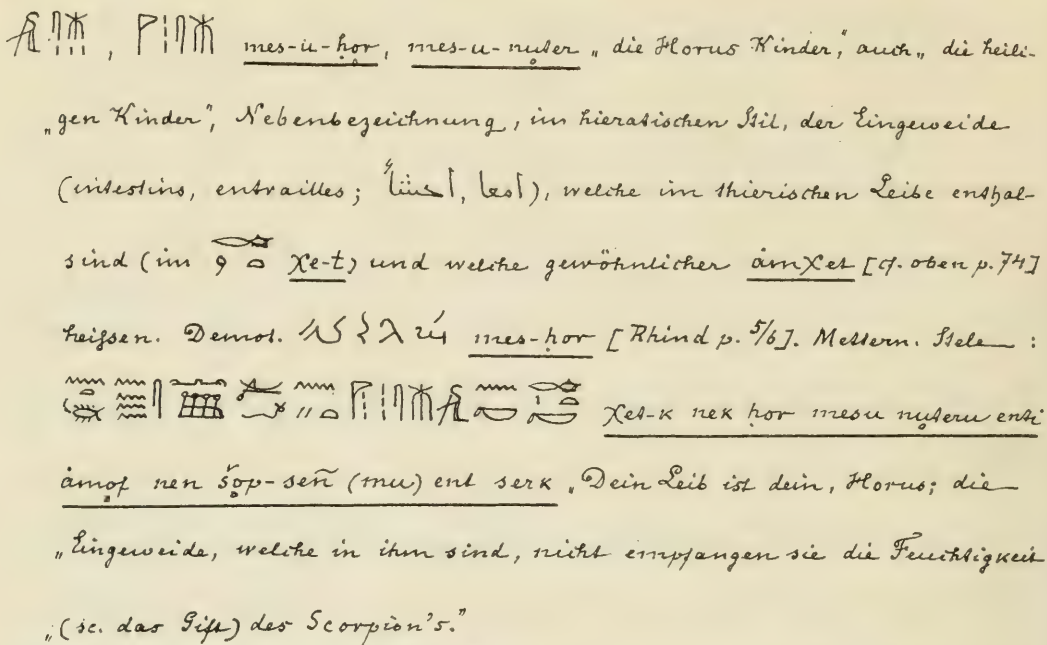 mes-u-ḥor, mes-u-nuter „die Horus Kinder", auch „die heili-
„gen Kinder", Nebenbezeichnung, im hieratischen Stil, der Eingeweide
(intestins, entrailles; امعا, احشا), welche im thierischen Leibe enthal-
sind (im χe-t) und welche gewöhnlicher ȧmχet [cf. oben p. 74]
heißen. Demot. mes-ḥor [Rhind p. 5/6]. Mettern. Stele:
χet-k nek ḥor mesu nuteru enti
ȧmof nen šop-señ (mu) ent serk „Dein Leib ist dein, Horus; die
„Eingeweide, welche in ihm sind, nicht empfangen sie die Feuchtigkeit
„(sc. das Gift) des Scorpion's."